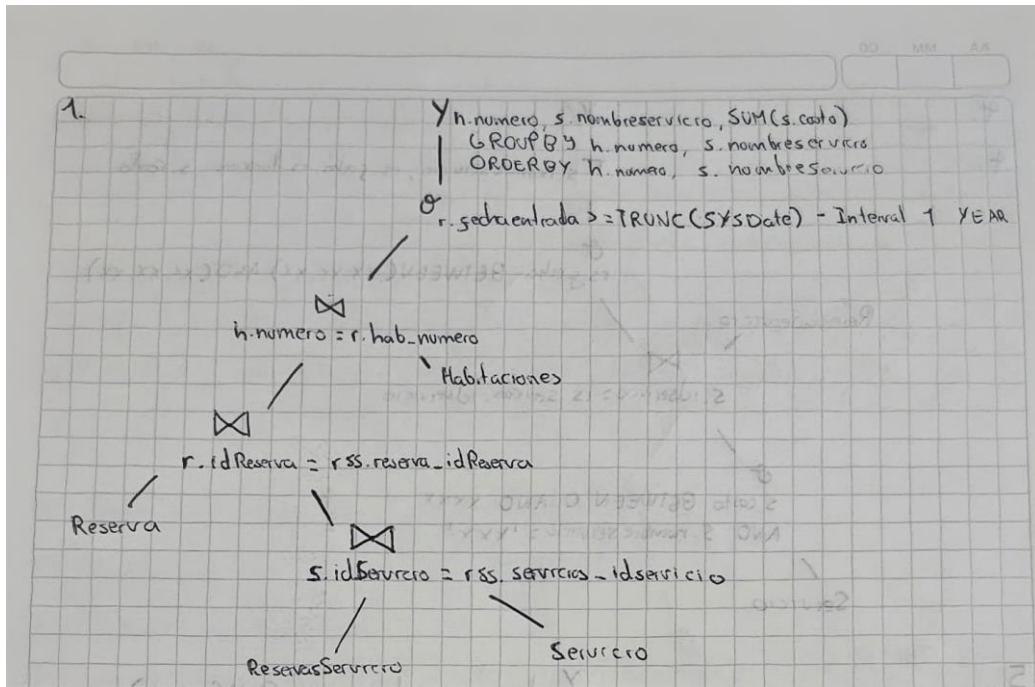 DD MM AA
1.
γ h.numero, s.nombreservicio, SUM(s.costo)
GROUPBY h.numero, s.nombreservicio
ORDERBY h.numero, s.nombreservicio
σ
r.fechaentrada >= TRUNC(SYSDate) - Interval 1 YEAR
⋈
h.numero = r.hab_numero
Habitaciones
⋈
r.idReserva = rss.reserva_idReserva
Reserva
⋈
s.idServicio = rss.servicios_idservicio
ReservasServicio
Servicio